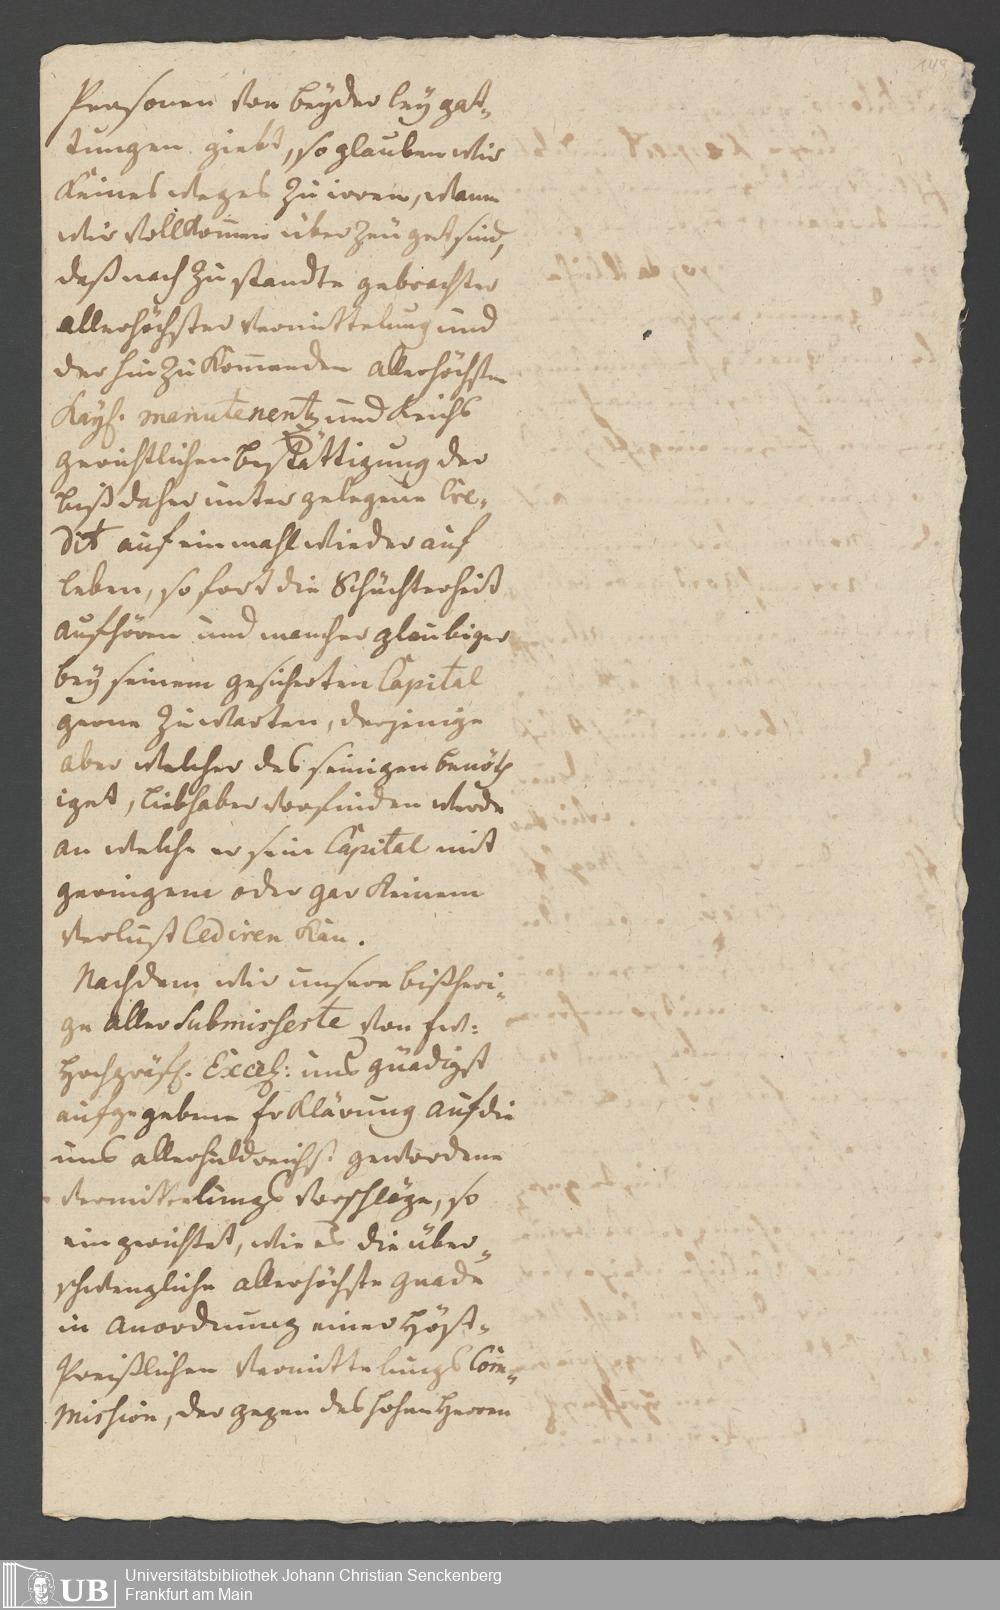 149
Personen von beyderley gat-
tungen giebt, so glauben wir
keines weges zu irren, wann
wir vollkommen überzeuget sind,
daß nach zu stande gebrachter
allerhöchster Vermittelung und
der hinzukommenden allerhöchsten
Kayſ. manutenentz und Reichs
gerichtlichen bestättigung der
biß daher unter gelegene Cre-
dit auf einmahl wieder auf
leben, so fort die Schüchterheit
aufhören und mancher glaubiger
bey seinem gesicherten Capital
gerne zuwarten, derjenige
aber welcher des seinigen benöth
iget, liebhaber vorfinden werde
an welche er sein Capital mit
geringem oder gar keinem
Verlust Cediren kan.
Nachdem wir unsere bißheri-
ge aller submisseste von Ew:
Hochgräfl. Excell: uns gnädigst
aufgegebene Erklärung auf die
uns allerhuldreichst gewordene
Vermittelungs Vorschläge, so
eingerichtet, wie es die über-
schwengliche allerhöchste Gnade
in Anordnung einer Höchst-
Preißlichen Vermittelungs Com-
mission, der gegen des hohen Herren
UB
Universitätsbibliothek Johann Christian Senckenberg
Frankfurt am Main